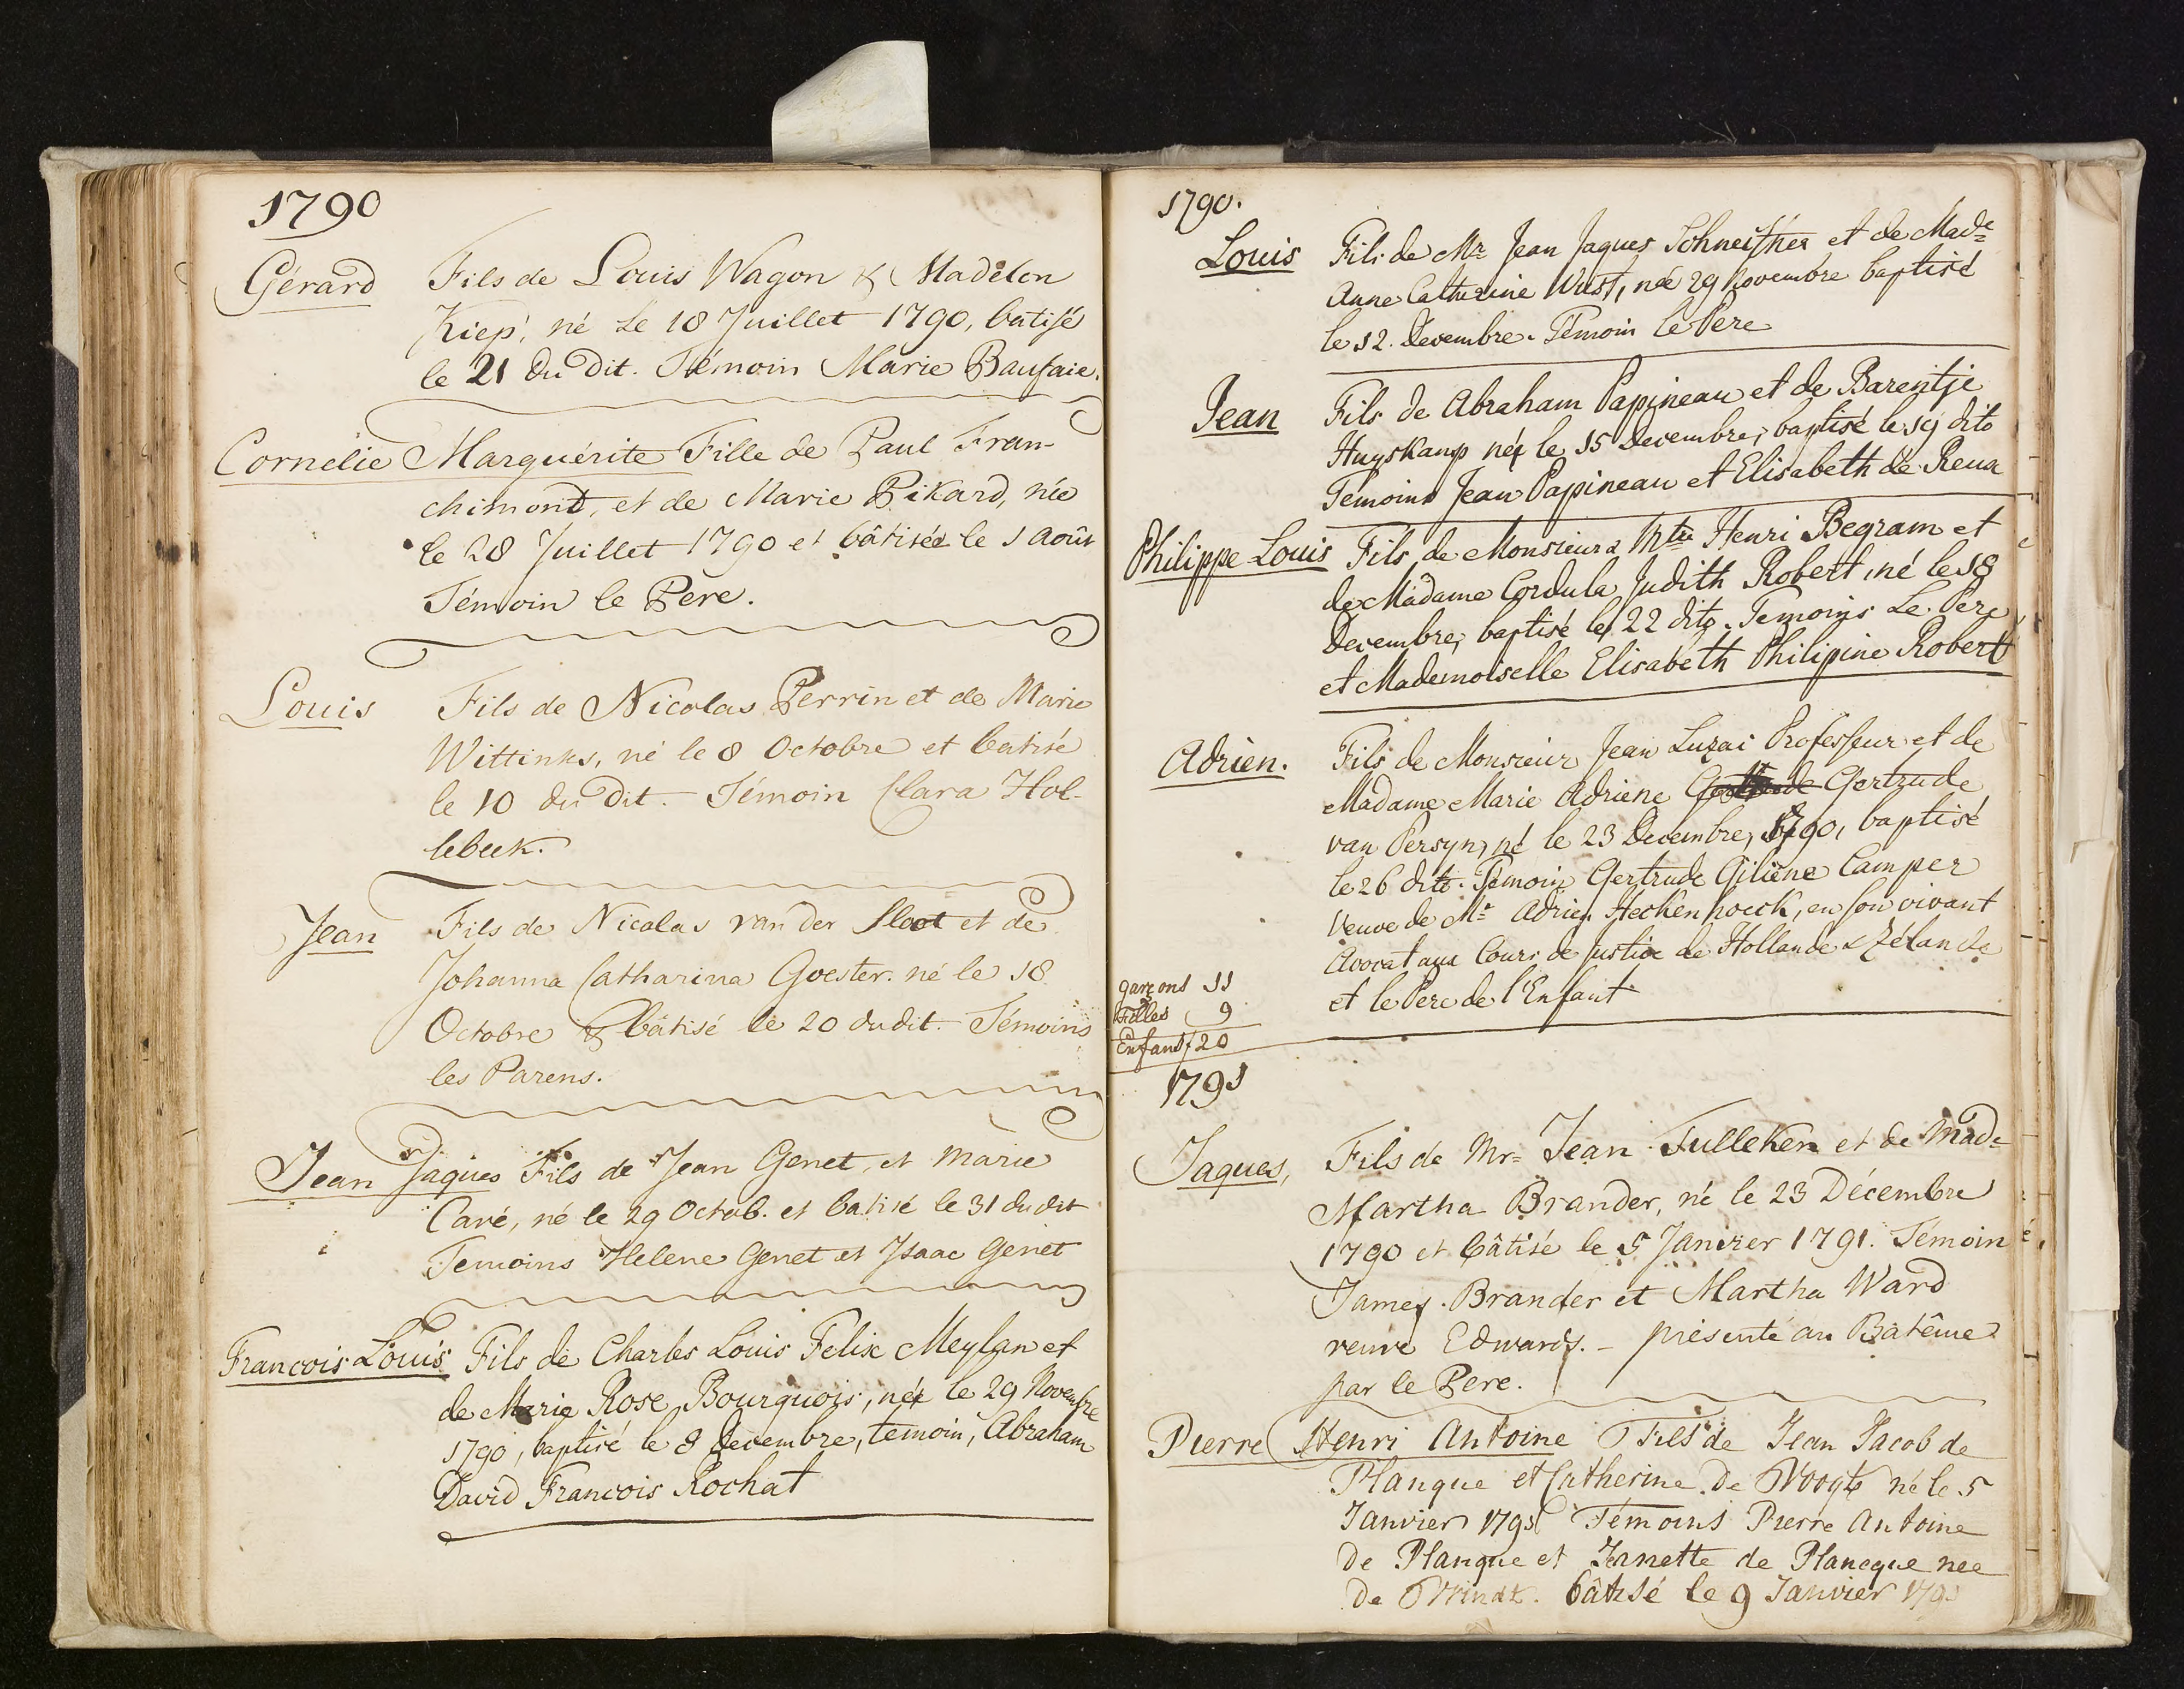 1790
Gérard Fils de Louis Wagon & Madelon
Kiep, né Le 18 Juillet 1790, batisé
le 21 du dit. Témoin Marie Baufaie.
Cornelie Marguérite Fille de Paul Fran-
chimont, et de Marie Pikard, née
le 28 Juillet 1790 et bâtisée le 1 Août
Témoin le Père.
Louis Fils de Nicolas Perrin et de Marie
Wittinks, né le 8 Octobre et batisé
le 10 du dit. Témoin Clara Hol-
lebeek.
Jean Fils de Nicolas van der Sloot et de
Johanna Catharina Goester. né le 18
Octobre & bâtisé le 20 du dit. Témoins
les Parens.
Jean Jaques Fils de Jean Genet, et Marie
Cavé, né le 29 Octob. et batisé le 31 du dit
Temoins Helene Genet et Isaac Genet
Francois Louis Fils de Charles Louis Felix Meylan et
de Marie Rose Bourquois, né le 29 Novembre
1790, baptisé le 8 Decembre, temoin, Abraham
David Francois Rochat
1790.
Louis Fils de Mr Jean Jaques et de Made
Anne Catherine Wust, né 29 Novembre baptisé
le 12. Decembre. Témoin le Pere
Jean Fils de Abraham Papineau et de Barentje
Huyskamp né le 15 Decembre, baptisé le 19 dito
Temoins Jean Papineau et Elisabeth de Reux
Philippe Louis Fils de Monsieur Henri Begram et
de Madame Cordula Judith Robert, né le 18
Decembre, baptisé le 22 dito. Temoins Le Pere
et Mademoiselle Elisabeth Philipine Robert
Adrien. Fils de Monsieur Jean Luzac Professeur et de
Madame Marie Adriene Gertrude
van Persyn, né le 23 Decembre, 1790, baptisé
le 26 dito. Temoin Gertrude Giliene Camper
Veuve de Mr Adrien Heckenhoeck, en son vivant
Avocat aux Cours de Justice de Hollande & Zélande
et le Pere de l'Enfant
garçons 11
Filles 9
Enfans 20
1791
Jaques, Fils de Mr Jean Tulleken et de Made
Martha Brander, né le 23 Décembre
1790 et bâtisé le 5 Janvier 1791. Témoin
James Brander et Martha Ward
veuve Edwards. - présenté au Batême
par le Pere.
Pierre Henri Antoine Fils de Jean Jacob de
Planque et Catherine de Voogt né le 5
Janvier 1791 Témoins Pierre Antoine
De Planque et Jannette de Plancque nee
De Windt. bâtisé le 9 Janvier 1791